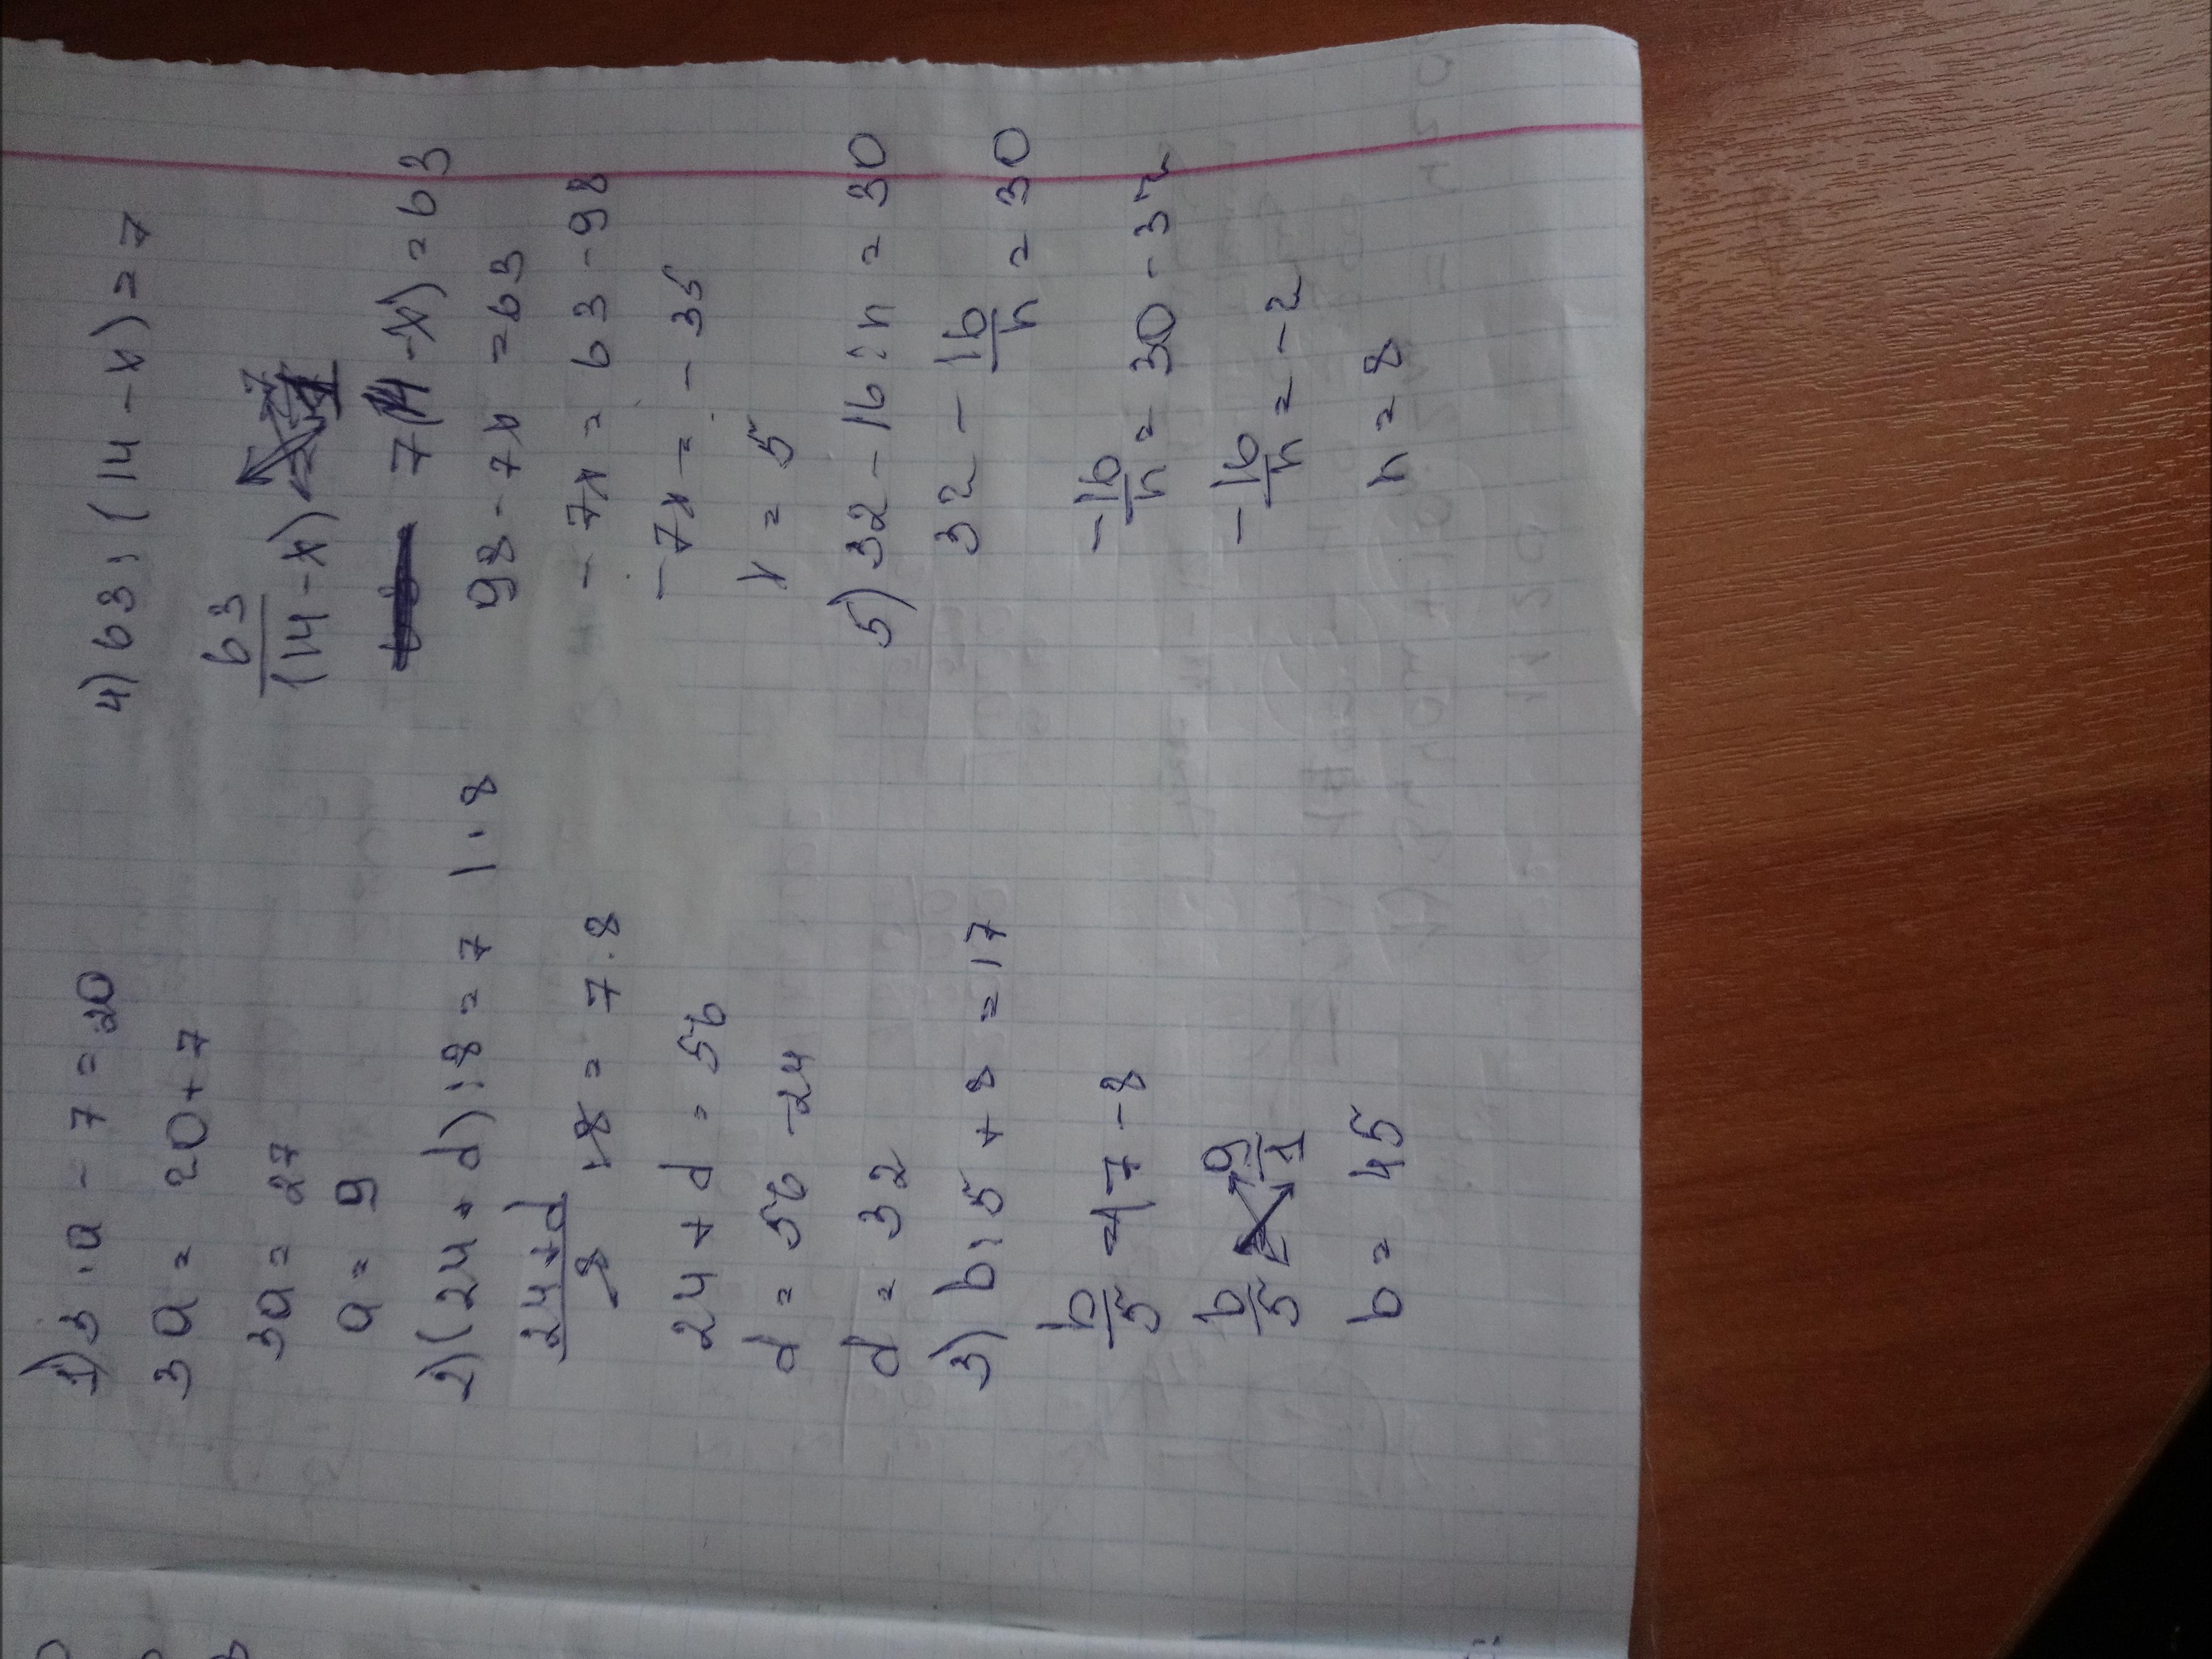 1) 3 · a - 7 = 20
3a = 20 + 7
3a = 27
a = 9
2) (24 + d) : 8 = 7 | · 8
24 + d / 8 · 8 = 7 · 8
24 + d = 56
d = 56 - 24
d = 32
3) b : 5 + 8 = 17
b/5 = 17 - 8
b/5 = 9/1
b = 45
4) 63 : (14 - x) = 7
63/(14 - x) =
7(14 - x) = 63
98 - 7x = 63
- 7x = 63 - 98
- 7x = - 35
x = 5
5) 32 - 16 : n = 30
32 - 16/n = 30
- 16/n = 30 - 32
- 16/n = - 2
n = 8